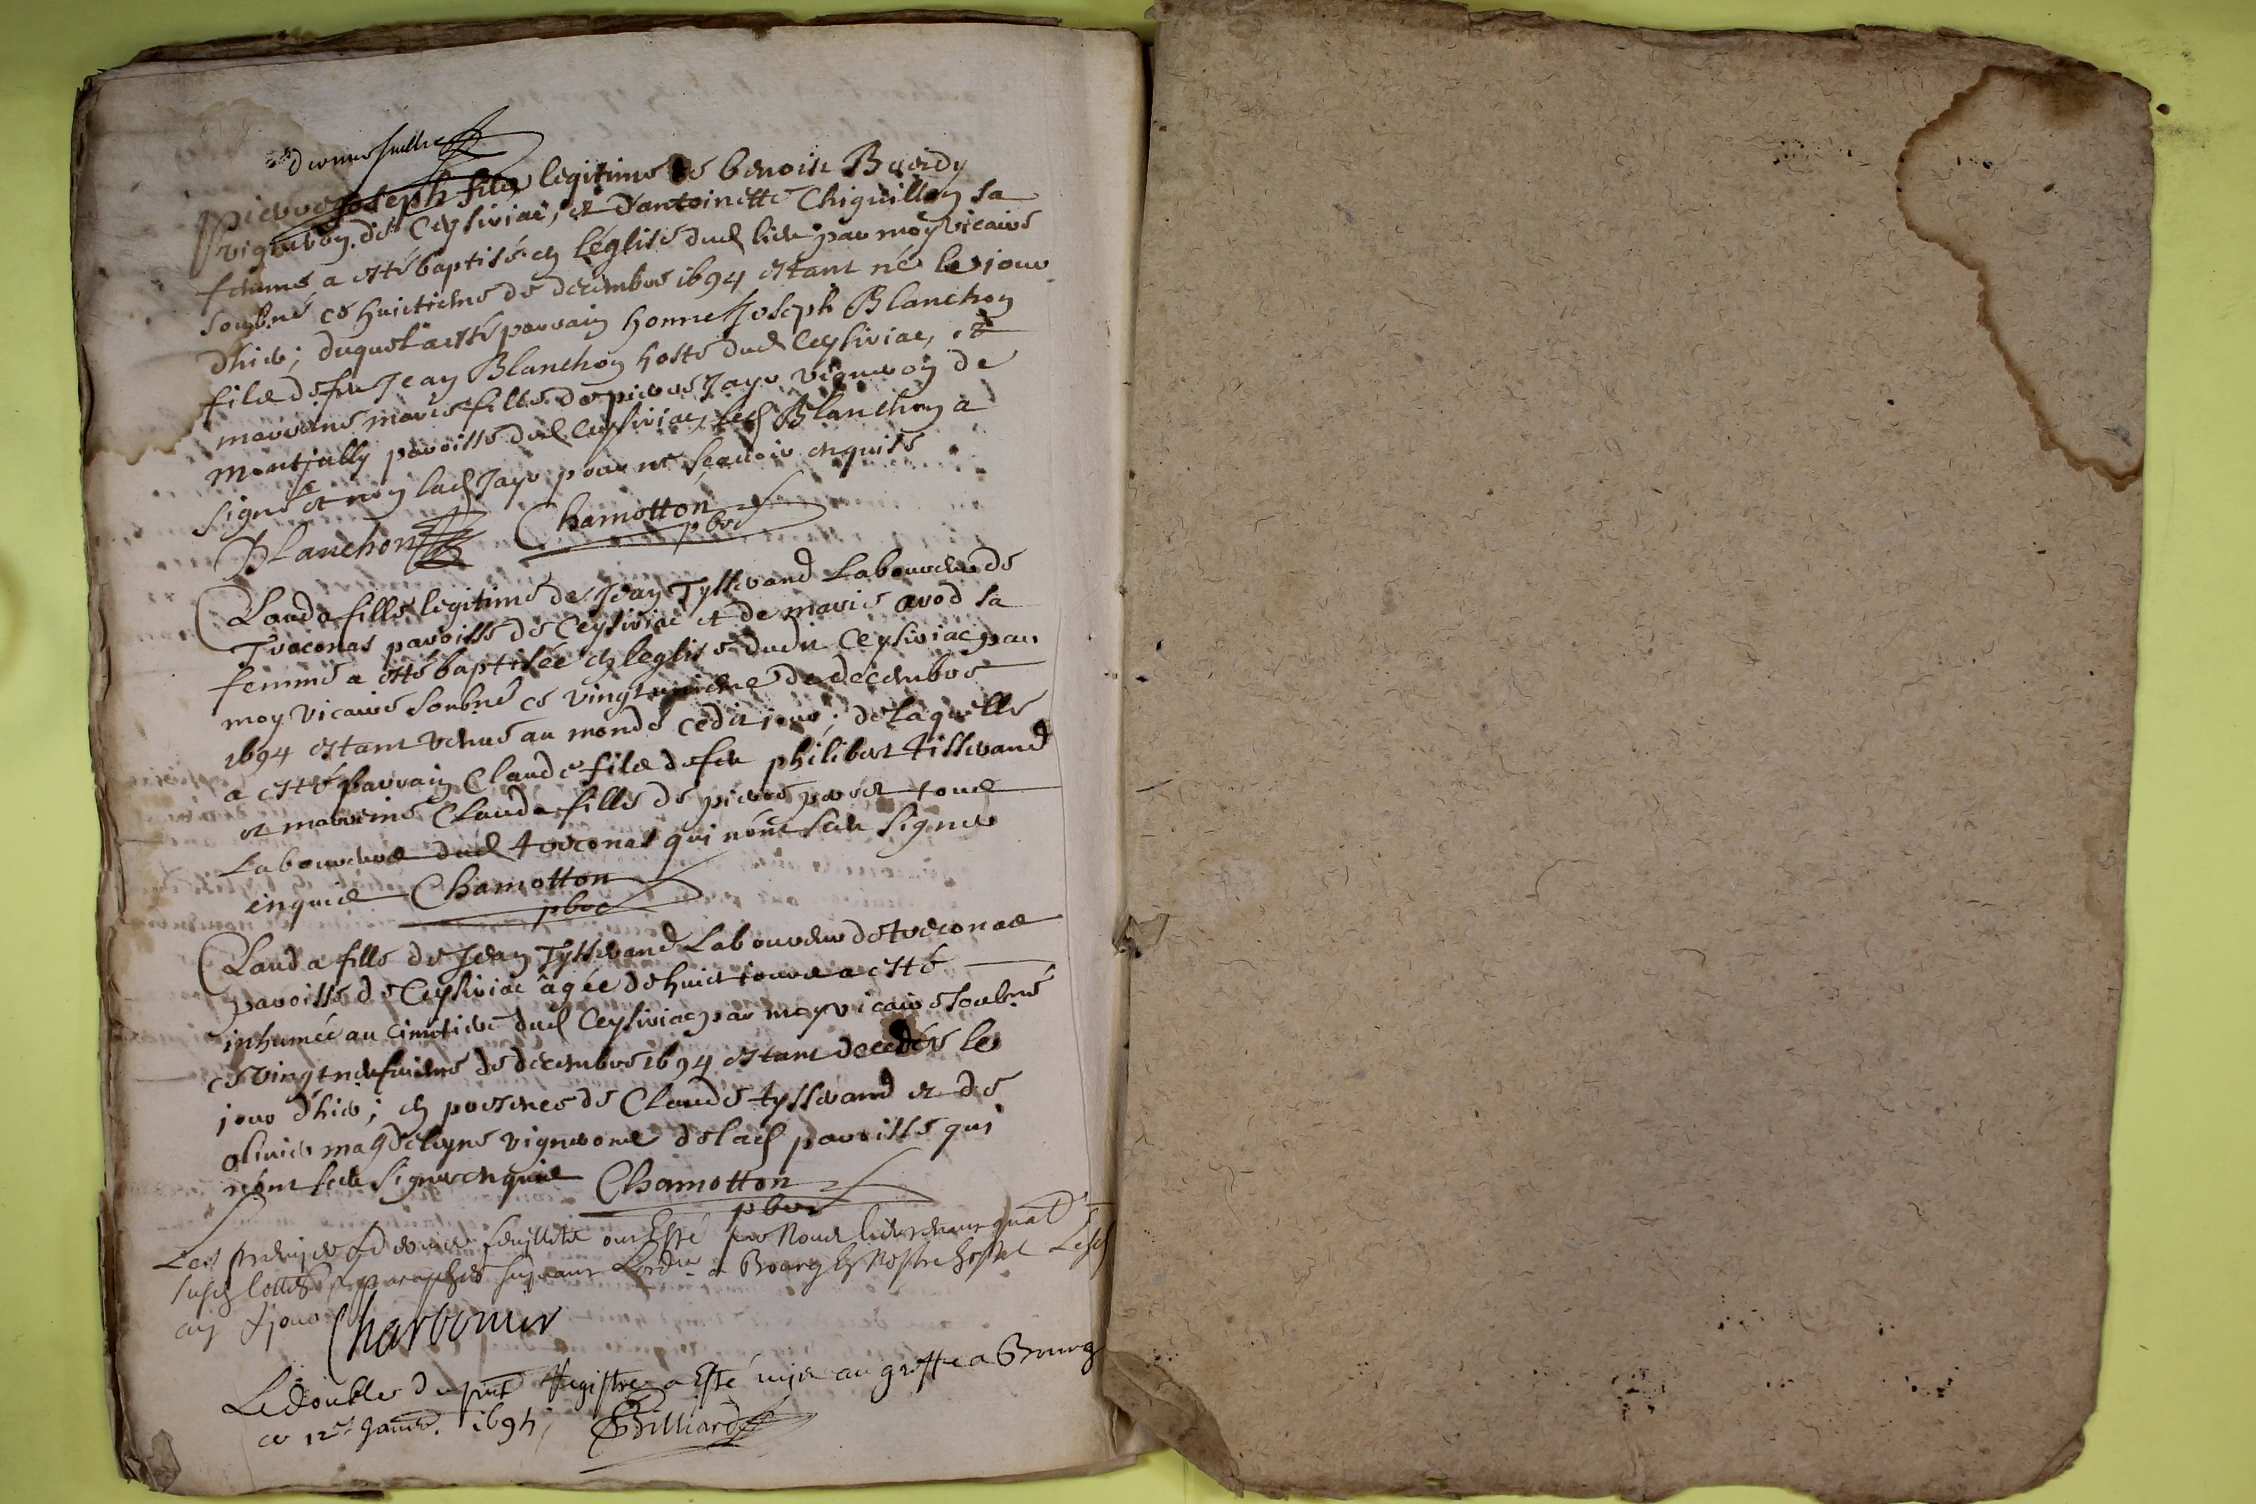 dernier fuillet
Pierre Joseph filz legitime de benoist Buerdy
vigneron de Ceysiriac, et d'antoinette Chiguillon sa
femme a esté baptisé en léglise dud lieu par moy vicaire
soubné ce huictieme de decembre 1694 estant né le jour
d'hier; duquel a esté parrain honne Joseph Blanchon
filz de feu Jean Blanchon hoste dud Ceysiriac, et
marreine marie fille de pierre Jayr vigneron de
montjully paroisse dud Ceysiriac, led Blanchon a
signé et non lad Jayr pour ne sçavoir enquise
Blanchon Chamotton
pbre
Clauda fille legitime de Jean Tysserand Laboureur de
Treconas paroisse de Ceysiriac et de marie avod sa
femme a esté baptisée en leglise dudit Ceysiriac par
moy vicaire soubné ce vingt unieme de decembre
1694 estant venue au monde cedit jour; de laquelle
a esté parrain Claude filz de feu philibert tisserand
et marreine Clauda fille de pierre pvost tous
Laboureurs dud treconas qui n'ont sceu signer
enquis Chamotton
pbre
Clauda fille de Jean Tysserand Laboureur de treconas
paroisse de Ceysiriac âgée de huict jours a esté
inhumée au cimetiere dud Ceysiriac par moy vicaire soubné
ce vingt neufvieme de decembre 1694 estant decedée le
jour d'hier; en presence de Claude tysserand et de
olivier magdeleyne vignerons de lad parroisse qui
n'ont sceu signer enquis Chamotton
pbre
Les premier et dernier feuillets ont Esté par Nous lieutenant
susd cottés et paraphés suivant Lordce a Bourg En Nostre hostel Lesd
an et jour
Charbonier
Le double du pnt Registre a Esté mis au greffe a Bourg
ce 12e Janvr. 1695 Billiard